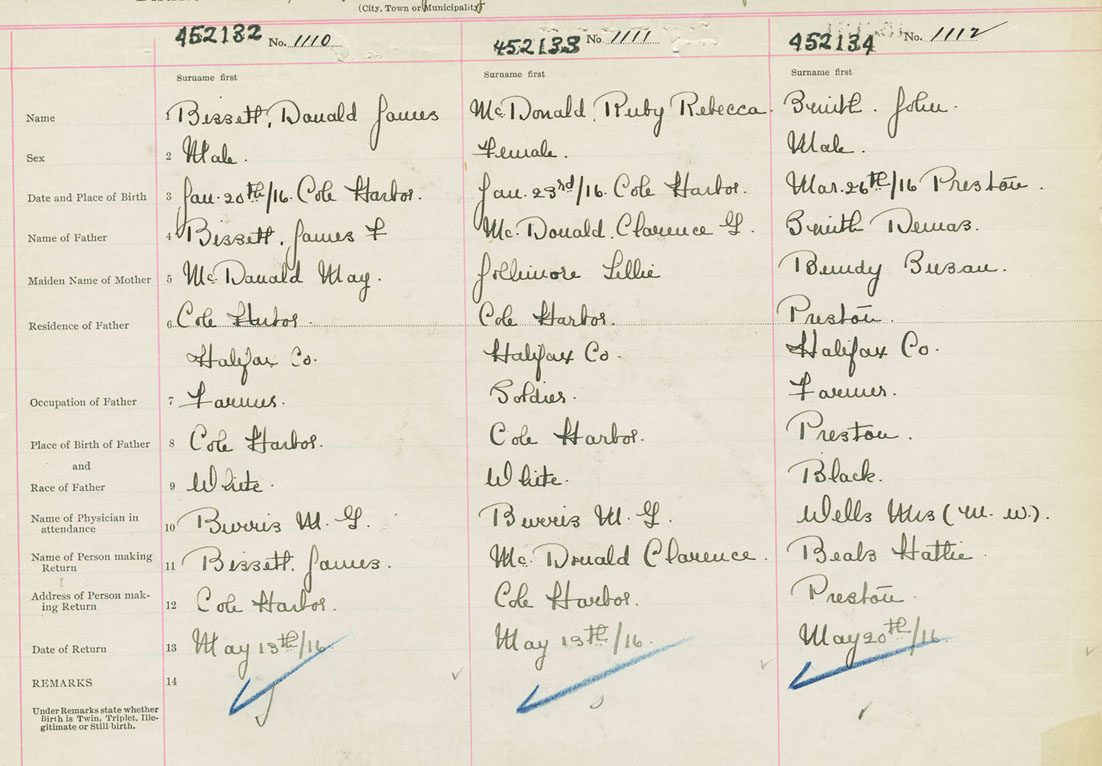 (City, Town or Municipality)
452132 No. 1110 452133 No. 1111 452134 No. 1112
Surname first Surname first Surname first
Name 1 Bissett, Donald James McDonald, Ruby Rebecca. Smith. John.
Sex 2 Male. Female. Male.
Date and Place of Birth 3 Jan. 20th/16. Cole Harbor. Jan. 23rd/16. Cole Harbor. Mar. 26th/16 Preston.
Name of Father 4 Bissett, James F McDonald. Clarence G. Smith Demas.
Maiden Name of Mother 5 McDonald May. Jollimore Lillie Bundy Susan.
Residence of Father 6 Cole Harbor. Cole Harbor. Preston.
Halifax Co. Halifax Co. Halifax Co.
Occupation of Father 7 Farmer. Soldier. Farmer.
Place of Birth of Father 8 Cole Harbor. Cole Harbor. Preston.
and
Race of Father 9 White. White. Black.
Name of Physician in
attendance 10 Burris M. G. Burris M. G. Wells Mrs (M. W.).
Name of Person making
Return 11 Bissett. James. McDonald Clarence. Beals Hattie.
Address of Person mak-
ing Return 12 Cole Harbor. Cole Harbor. Preston.
Date of Return 13 May 13th/16. May 13th/16. May 20th/16.
REMARKS 14
Under Remarks state whether
Birth is Twin, Triplet, Ille-
gitimate or Still-birth.